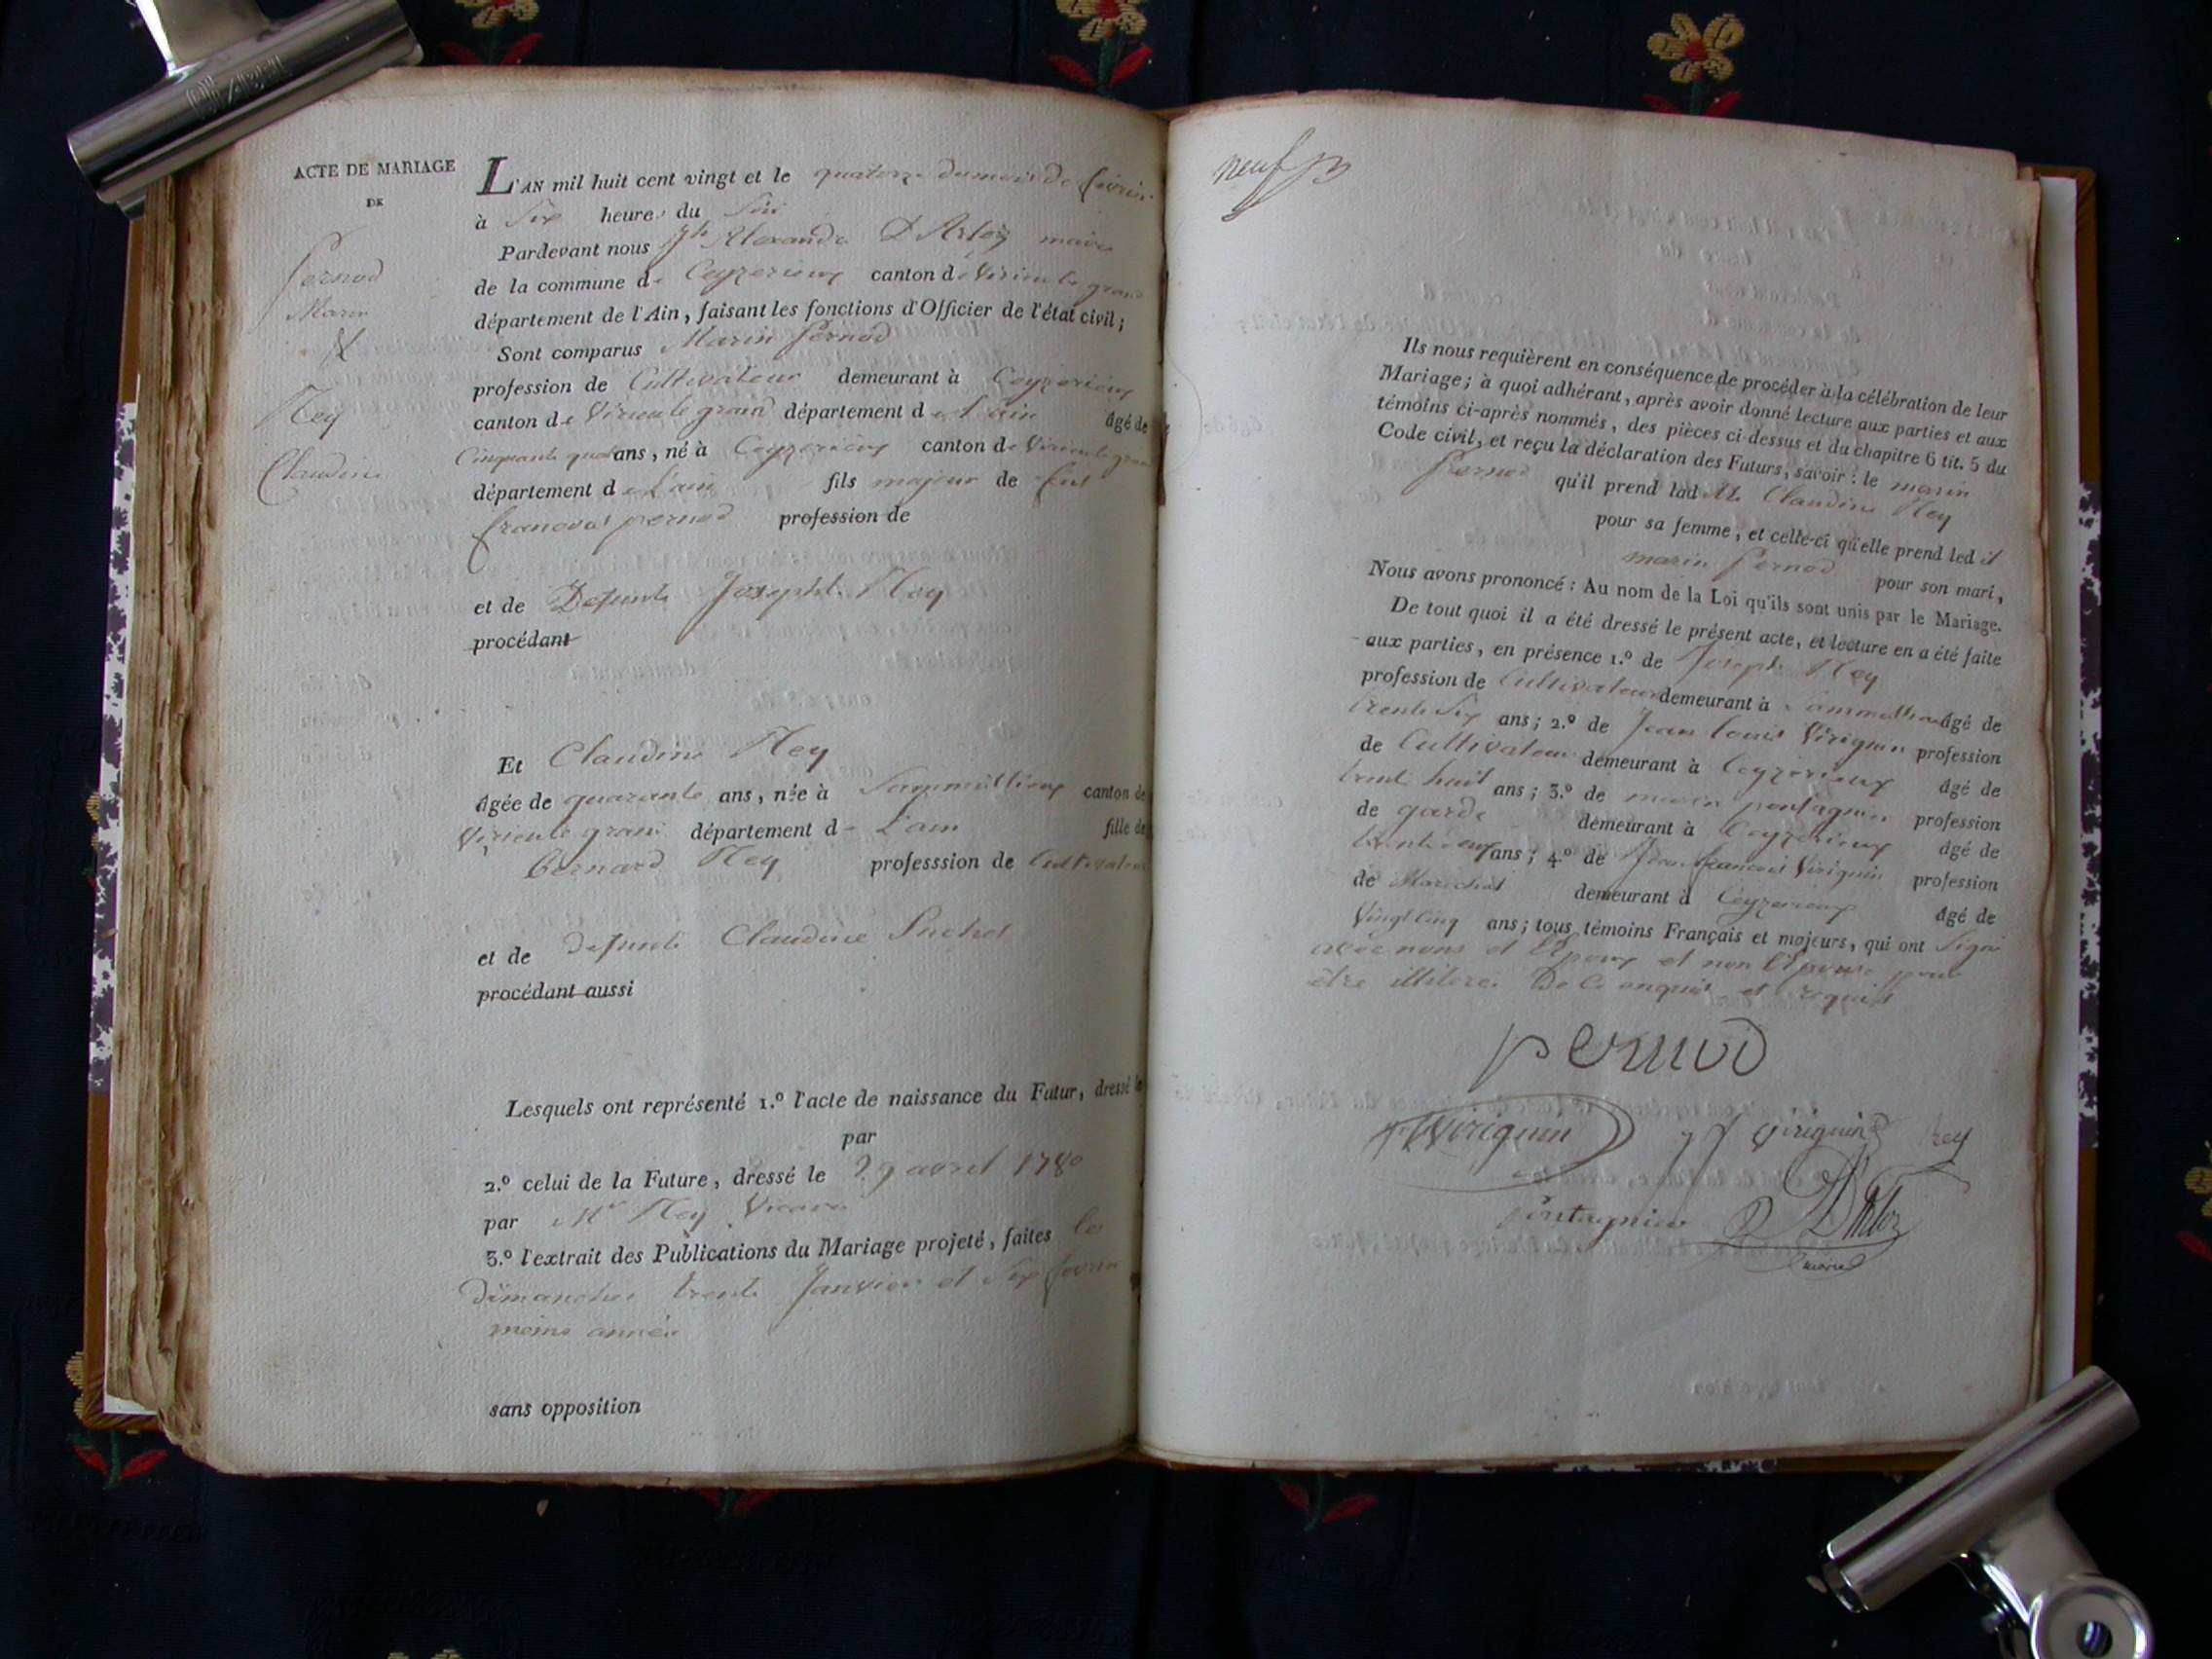 ACTE DE MARIAGE
DE
Pernod
Marin
&
Rey
Claudine
L'AN mil huit cent vingt et le quatorze du mois de février
à Six heures du Soir
Pardevant nous Jh Alexandre D'Arloz maire
de la commune de Ceyzerieux canton de Virieu le grand
département de l'Ain, faisant les fonctions d'Officier de l'état civil;
Sont comparus Marin Pernod
profession de Cultivateur demeurant à Ceyzerieux
canton de Virieu le grand département de l'ain âgé de
Cinquante ans, né à Ceyzerieux canton de Virieu le grand
département de L'ain fils majeur de feu
francois pernod profession de
et de Defunte Josephte Rey
procédant
Et Claudine Rey
âgée de quarante ans, née à canton de
Virieu le grand département de L'ain fille de
Bernard Rey professsion de Cultivateur
et de defunte Claudine
procédant aussi
Lesquels ont représenté 1.º l'acte de naissance du Futur, dressé le
par
2.º celui de la Future, dressé le 29 avril 1780
par Mr Rey Vicaire
3.º l'extrait des Publications du Mariage projeté, faites les
dimanches trente Janvier et Six fevrier
meme année
sans opposition
neuf
Ils nous requièrent en conséquence de procéder à la célébration de leur
Mariage; à quoi adhérant, après avoir donné lecture aux parties et aux
témoins ci-après nommés, des pièces ci-dessus et du chapitre 6 tit. 5 du
Code civil, et reçu la déclaration des Futurs, savoir: le marin
Pernod qu'il prend lad.te Claudine Rey
pour sa femme, et celle-ci qu'elle prend led it
marin Pernod pour son mari,
Nous avons prononcé: Au nom de la Loi qu'ils sont unis par le Mariage.
De tout quoi il a été dressé le présent acte, et lecture en a été faite
aux parties, en présence 1.º de Joseph Rey
profession de Cultivateur demeurant à âgé de
trente Six ans; 2.º de Jean Louis Virignin profession
de Cultivateur demeurant à Ceyzerieux âgé de
trent huit ans; 3.º de marin pontagnier profession
de garde demeurant à Ceyzerieux âgé de
ans; 4.º de Jean francois Virignin profession
de Marechal demeurant à Ceyzerieux âgé de
Vingt Cinq ans; tous témoins Français et majeurs, qui ont Signé
avec nous et l'Epoux et non l'Epouse pour
être illiteré De ce enquis et requis
pernod
Virignin Virignin rey
pontagnier D'Arloz
maire